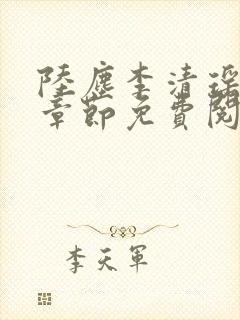 陸塵李清瑤
章節免費閱
李天軍